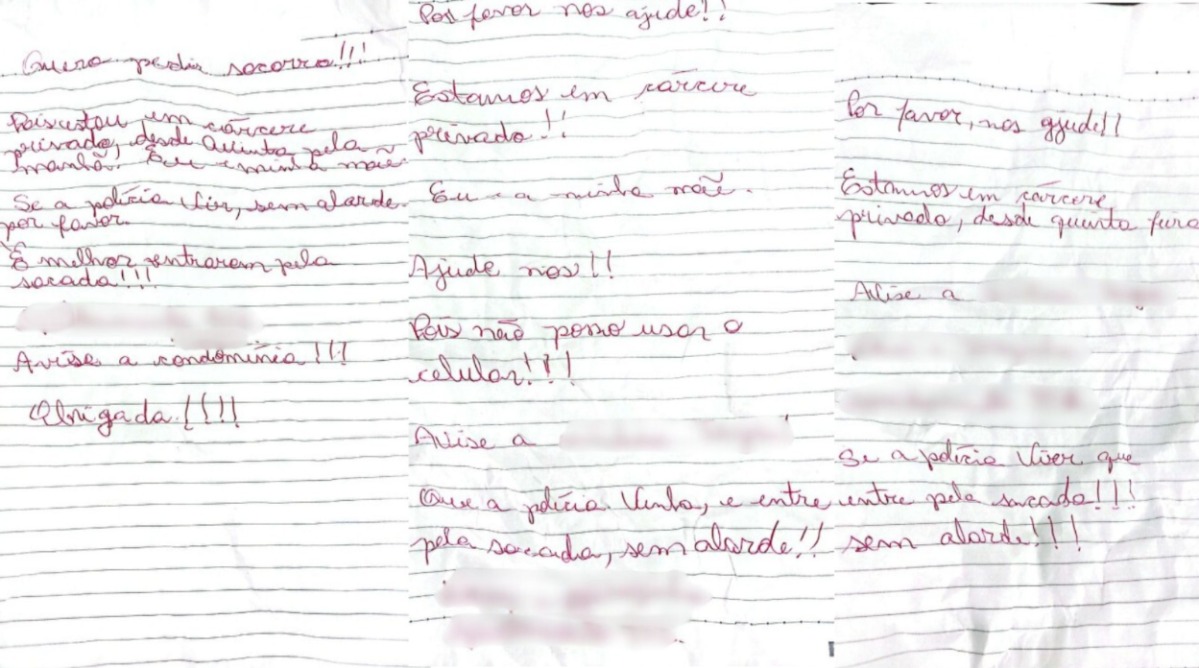 Quero pedir socorro!!!
Pois estou em cárcere
privado, desde Quinta pela
manhã. Eu e minha mãe
Se a polícia vir, sem alarde
por favor.
É melhor entrarem pela
sacada!!!
Avise a condominia!!!
Obrigada!!!!
Por favor nos ajude!!
Estamos em cárcere
privado!!
Eu e a minha mãe.
Ajude nos!!
Pois não posso usar o
celular!!!
Avise a
Que a polícia Venha, e entre
pela sacada, sem alarde!!
Por favor, nos ajude!!
Estamos em cárcere
privado, desde quinta feira
Avise a
Se a polícia vier que
entre pela sacada!!!
sem alarde!!!